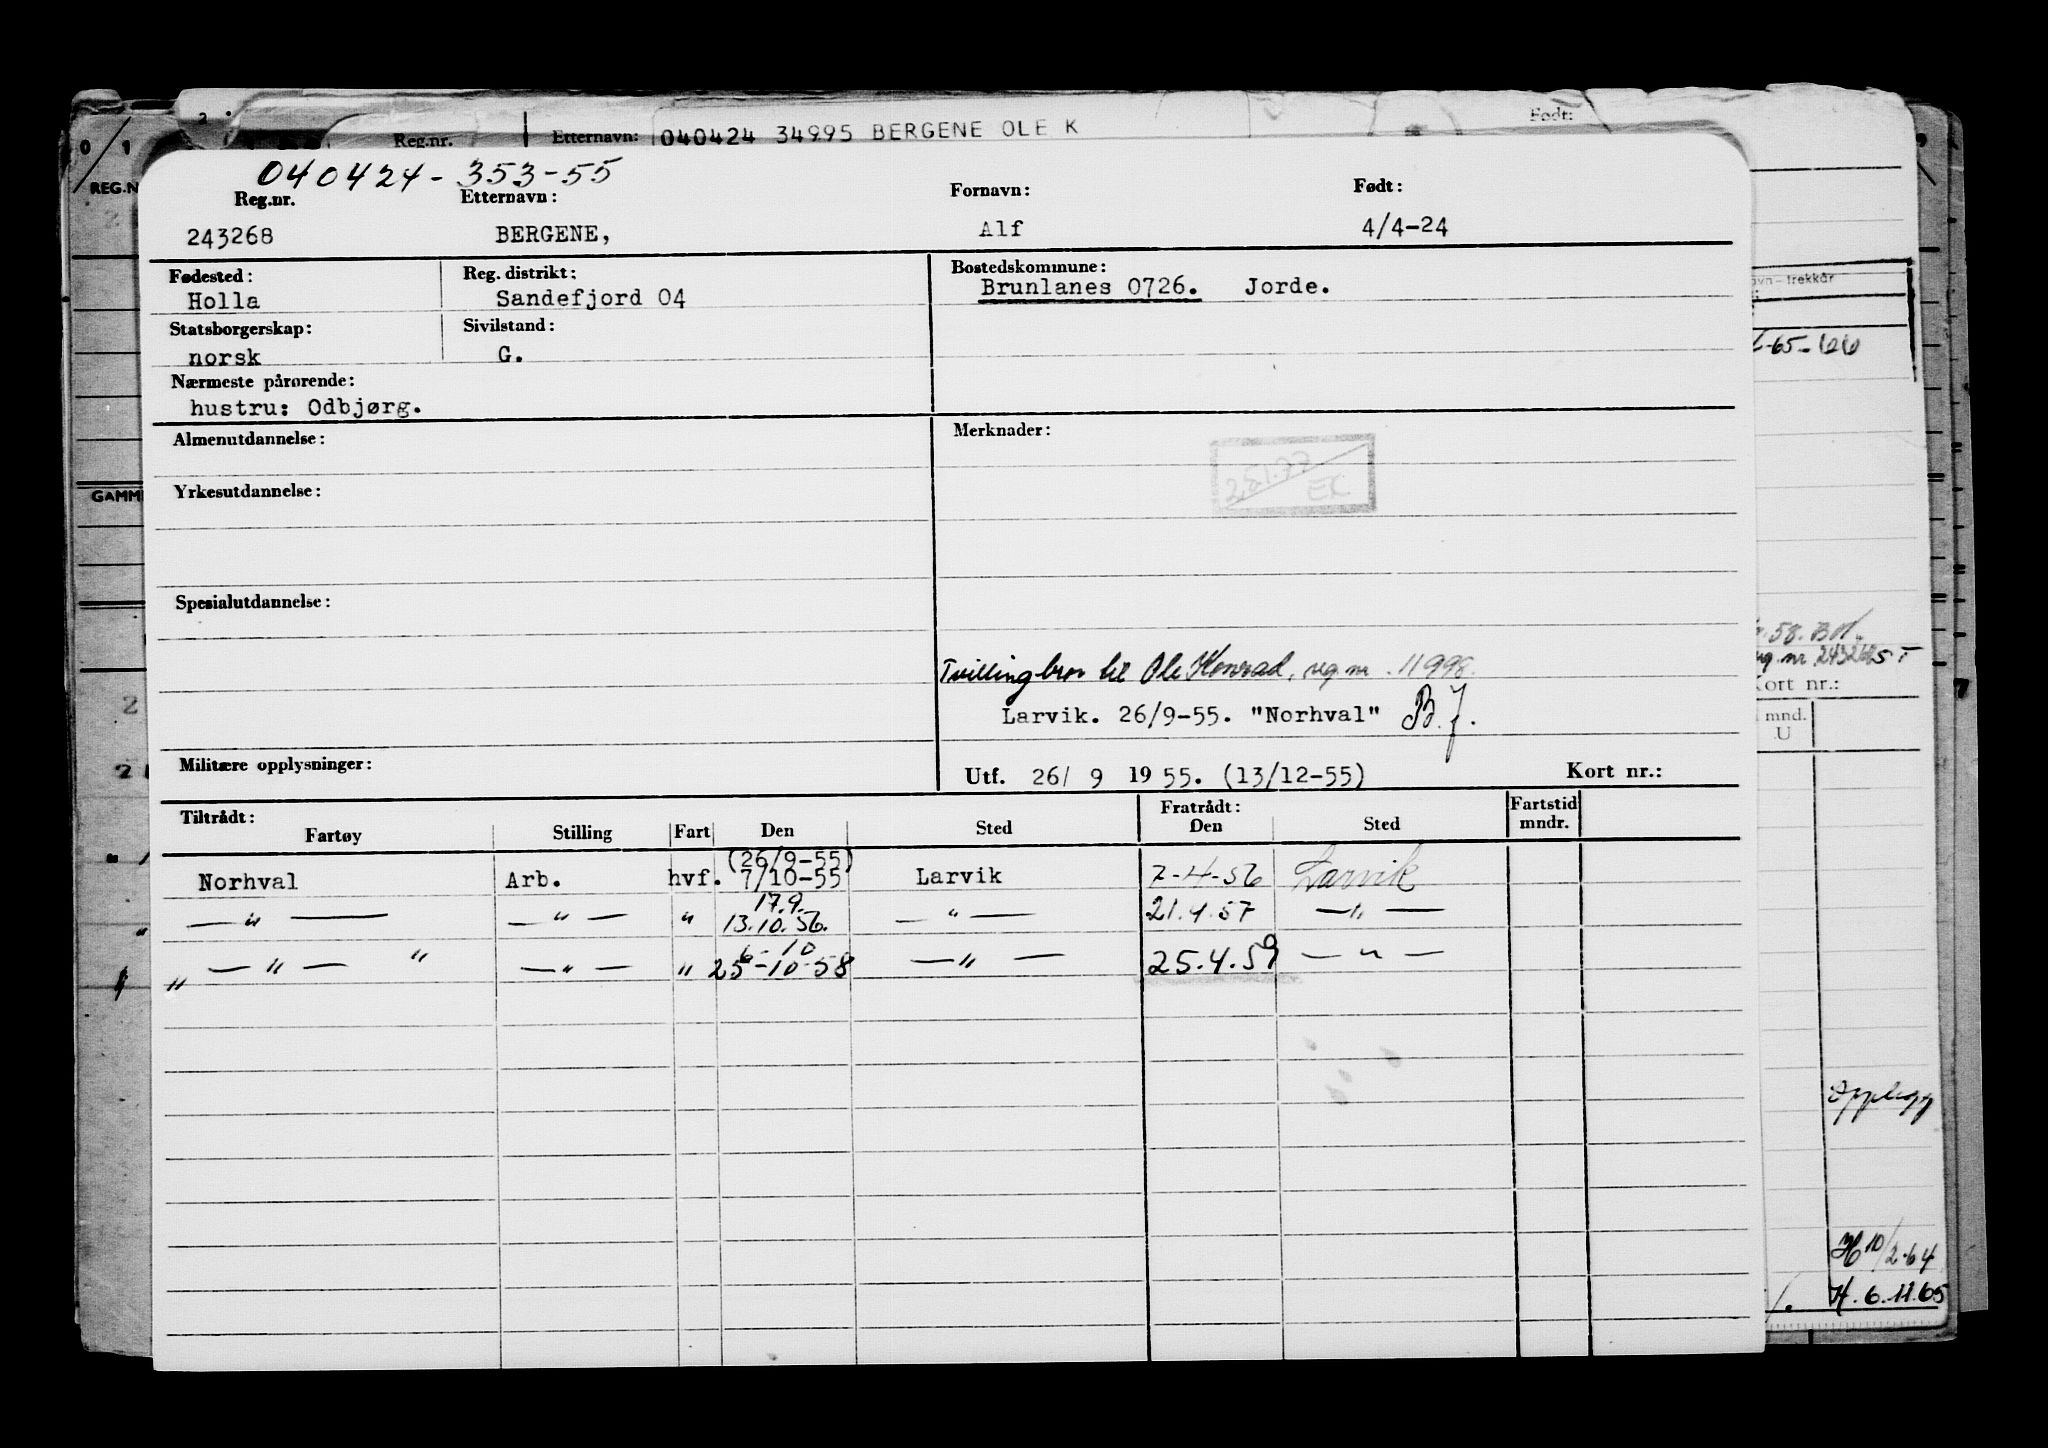 Reg.nr. Etternavn: 040424 34995 BERGENE OLE K Født:
040424-353-55
Reg.nr. Etternavn: Fornavn: Født:
243268 BERGENE, Alf 4/4-24
Fødested: Reg. distrikt: Bostedskommune:
Holla Sandefjord 04 Brunlanes 0726. Jorde.
Statsborgerskap: Sivilstand:
norsk G.
Nærmeste pårørende:
hustru: Odbjørg.
Almenutdannelse: Merknader:
EK
Yrkesutdannelse:
Spesialutdannelse:
Tvillingbror til Ole Konrad, reg. nr. 11998.
Larvik. 26/9-55. "Norhval" B.J.
Militære opplysninger: Utf. 26/ 9 1955. (13/12-55) Kort nr.:
Tiltrådt: Fratrådt: Fartstid
Fartøy Stilling Fart Den Sted Den Sted mndr.
(26/9-55)
Norhval Arb. hvf. 7/10-55 Larvik 7-4-56 Larvik
17.9.
— " — — " — " 13.10.56. — " — 21.4.57 — " —
6-10
" — " — " — " — " 25-10-58 — " — 25.4.59 — " —
REG.N
GAMM
avn-trekkår
-65-66
58.
reg. nr. 243268
Kort nr.:
mnd.
U
Opplegg
H 10/2-64
H. 6.11.65